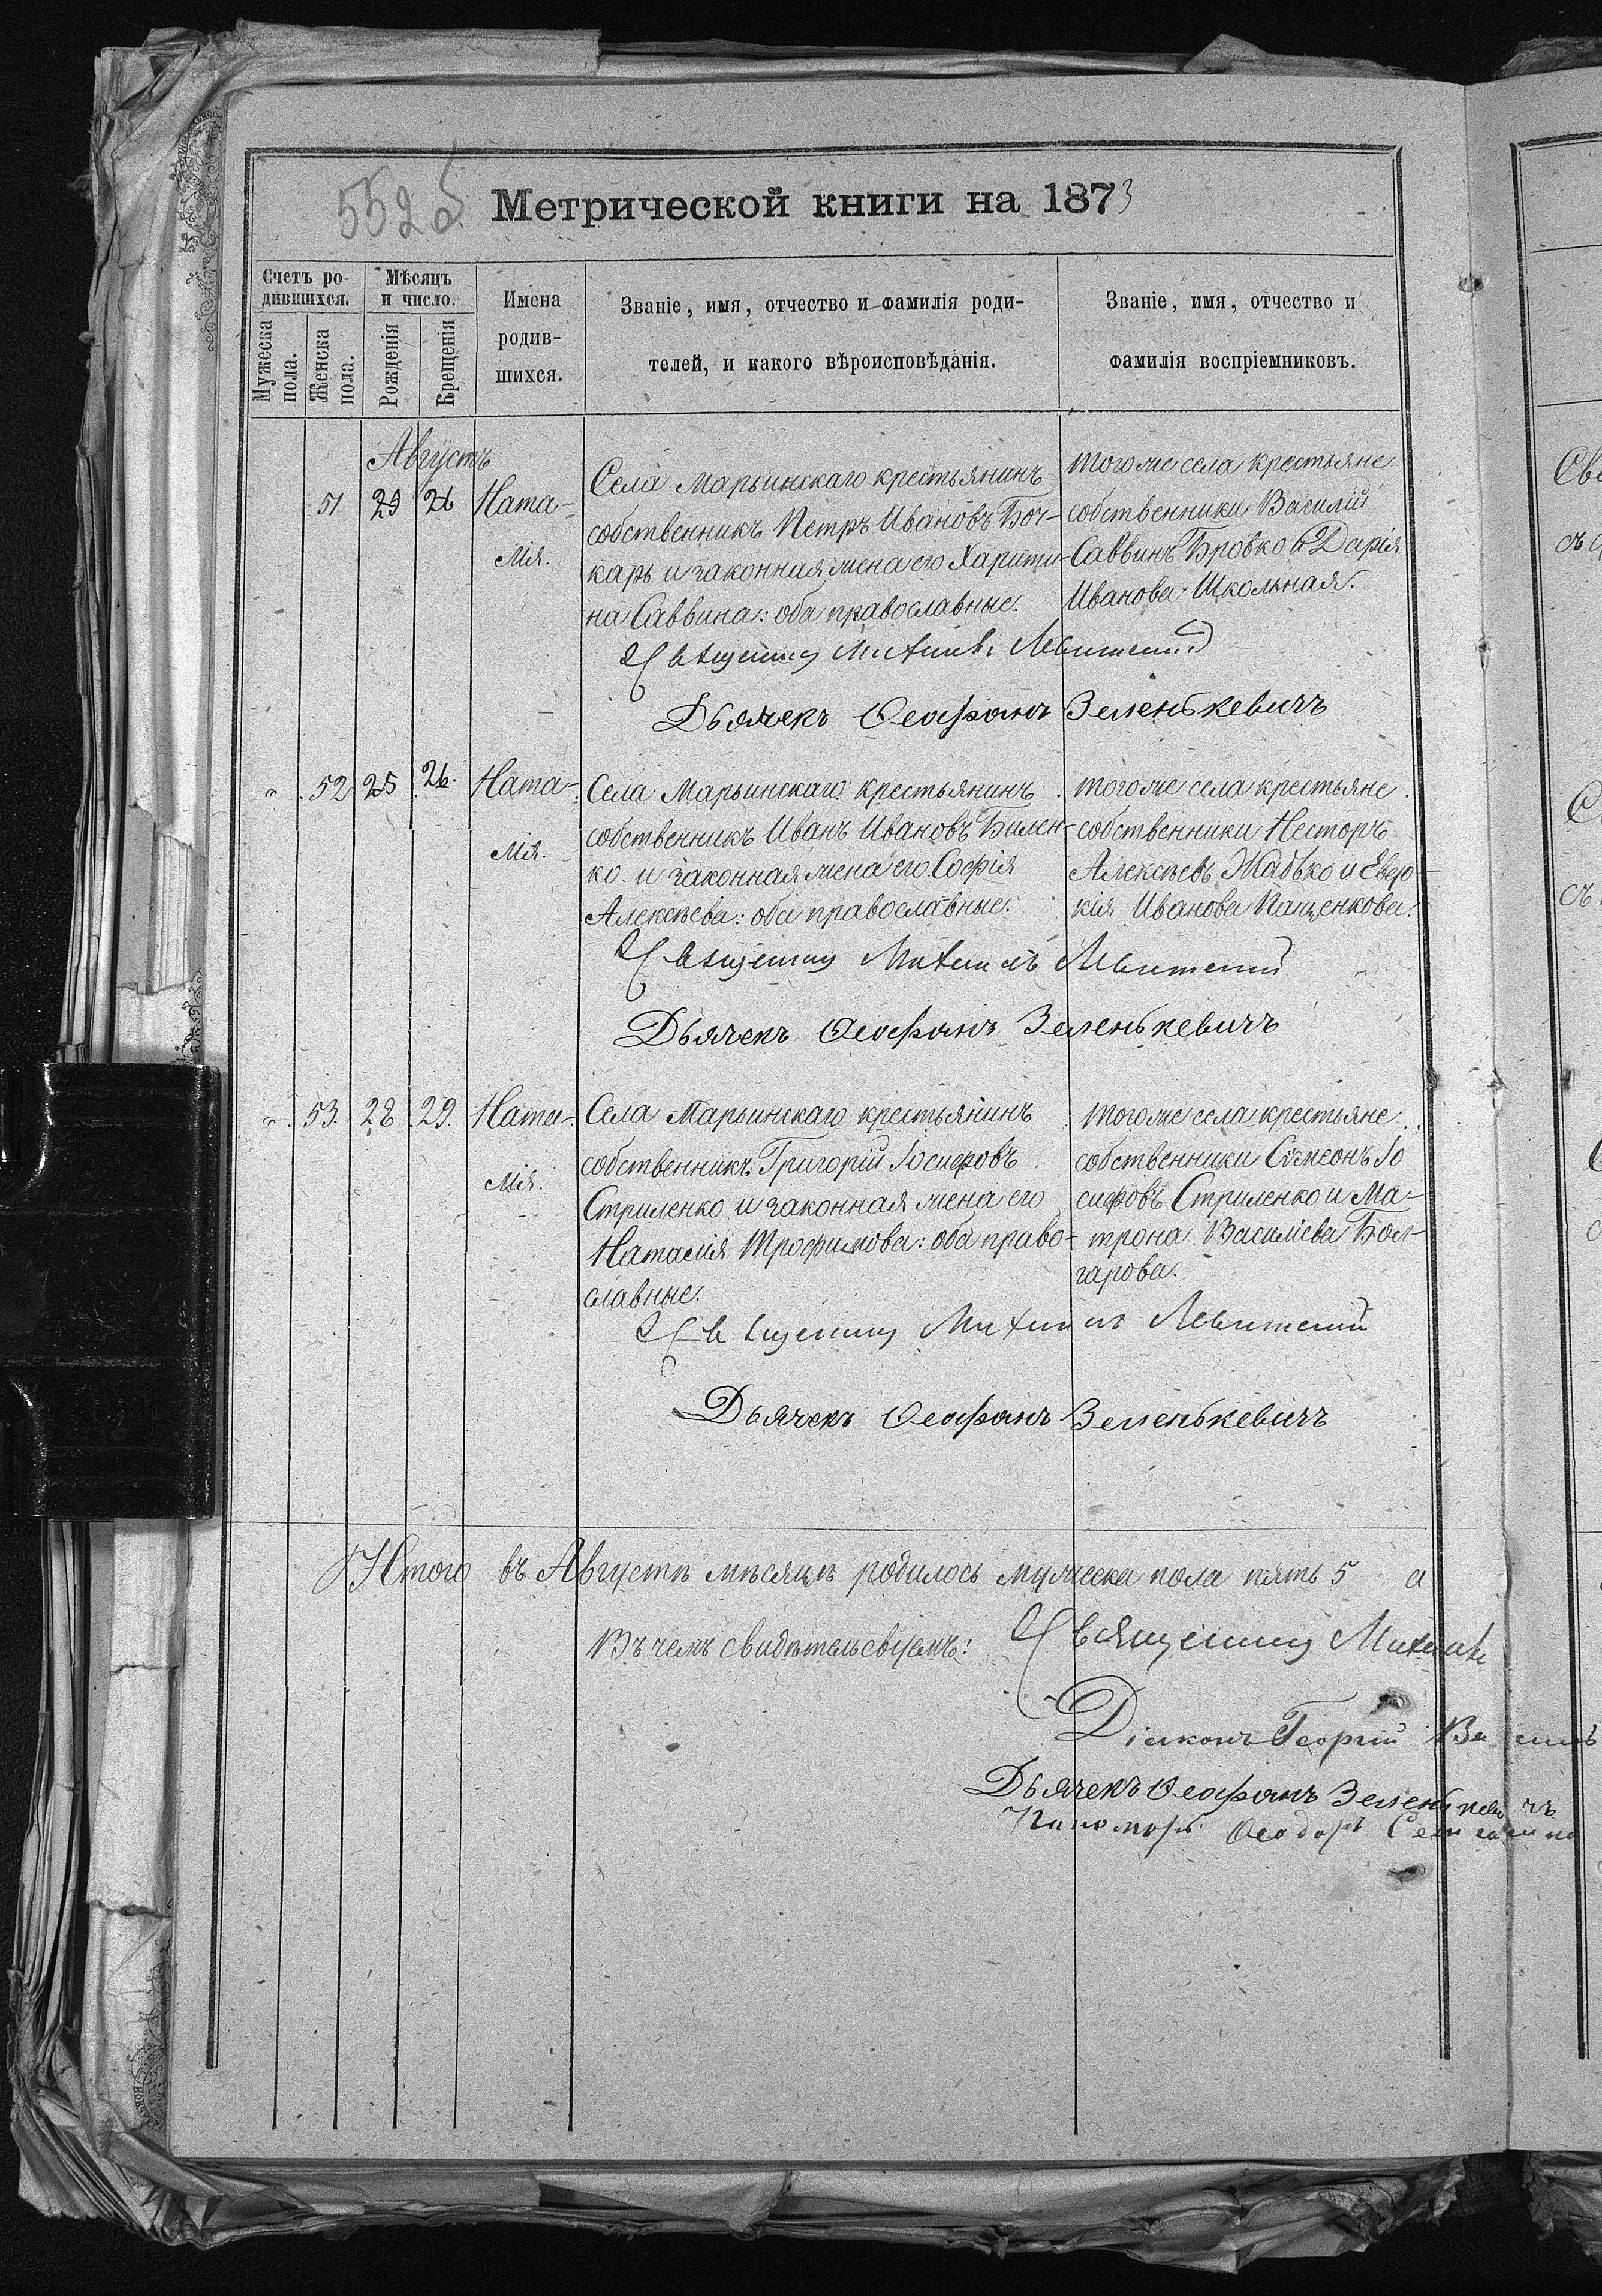 5525
Метрической книги на 1873
Счетъ ро-
дившихся.
Мужеска
пола.
Женска
пола.
Мѣсяцъ
и число.
Рожденія
Крещенія
Имена
родив-
шихся.
Званіе, имя, отчество и фамилія роди-
телей, и какого вѣроисповѣданія.
Званіе, имя, отчество и
фамилія воспріемниковъ.
Августъ
51 25 26 Ната-
лія.
Села Марьинскаго крестьянинъ
собственникъ Петръ Ивановъ Боч-
карь и законная жена его Харити-
на Саввина: оба православные.
тогоже села крестьяне
собственники Василій
Саввинъ Бровко и Дарія
Иванова Школьная.
Священникъ Михаилъ Левитскій
Дьячекъ Ѳеофанъ Зеленькевичъ
" 52 25 26. Ната-
лія.
Села Марьинскаго крестьянинъ
собственникъ Иванъ Ивановъ Билен-
ко и законная жена его Софія
Алексѣева: оба православные.
тогоже села крестьяне
собственники Несторъ
Алексѣевъ Жабько и Евдо-
кія Иванова Пащенкова.
Священникъ Михаилъ Левитскій
Дьячекъ Ѳеофанъ Зеленькевичъ
" 53. 28 29. Ната-
лія.
Села Марьинскаго крестьянинъ
собственникъ Григорій Іосифовъ
Стриленко и законная жена его
Наталія Трофимова: оба право-
славные.
тогоже села крестьяне
собственники Сѵмеонъ Іо
сифовъ Стриленко и Ма-
трона Василіева Бол-
гарова.
Священникъ Михаилъ Левитскій
Дьячекъ Ѳеофанъ Зеленькевичъ
Итого въ Августѣ мѣсяцѣ родилось мужеска пола пять 5 а
Въ чемъ свидѣтельствуемъ: Священникъ Михаилъ
Діаконъ Георгій
Дьячекъ Ѳеофанъ Зеленькевичъ
Пономарь Ѳеодоръ